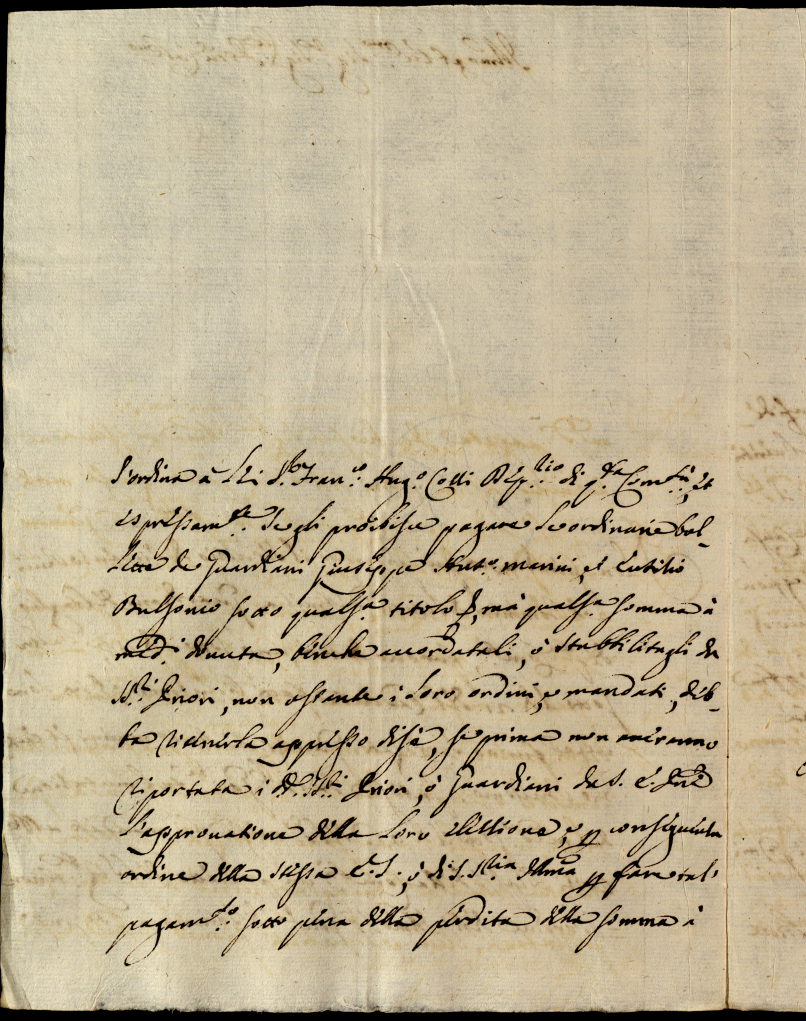 S'ordina à Lei S.r Fran.co Aug.o Colli Dep.rio di q.ta Com.tà, et
espressam.te se gli proibisce pagare le ordinarie bol-
lette de Guardiani Giuseppe Ant.o marini, et Eutilio
Bulsonio sotto qualsa. titolo, mà qualsa. somma à
med.i douuta, benche accordatali, ò stabbilitagli da
SS.ri Priori, non ostante i loro ordini, e mandati, deb-
ba ritenerla appresso di sè, se prima non aueranno
riportata i dd. SS.ri Priori, ò Guardiani da S. E. Pne
l'approuatione della loro elettione, e pp conseguenza
ordine della stessa E. S., ò di S. S.ria Illma pp fare tal
pagam.to sotto pena della perdita della somma à